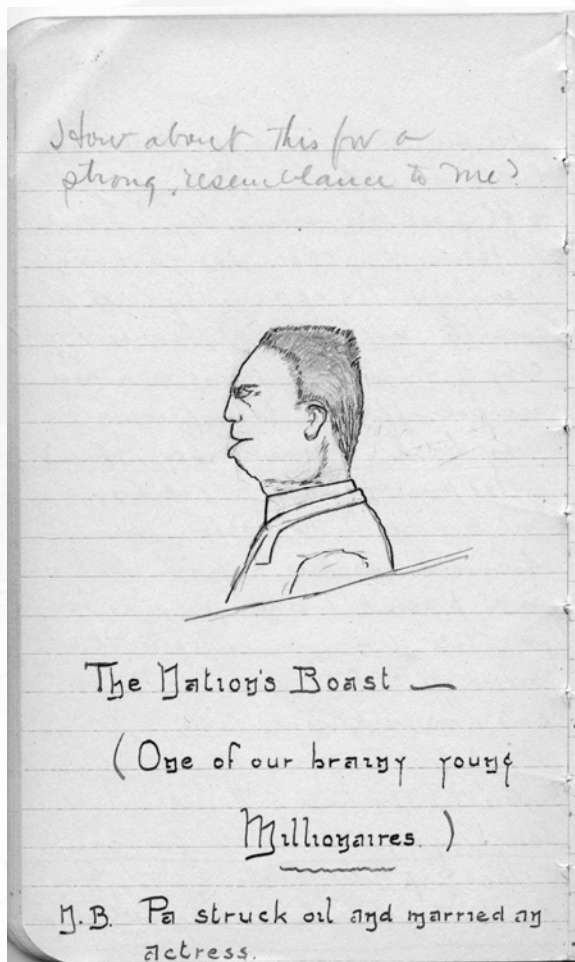 How about this for a
strong resemblance to me?
The Nation's Boast —
(One of our brainy young
Millionaires.)
N.B. Pa struck oil and married an
actress.